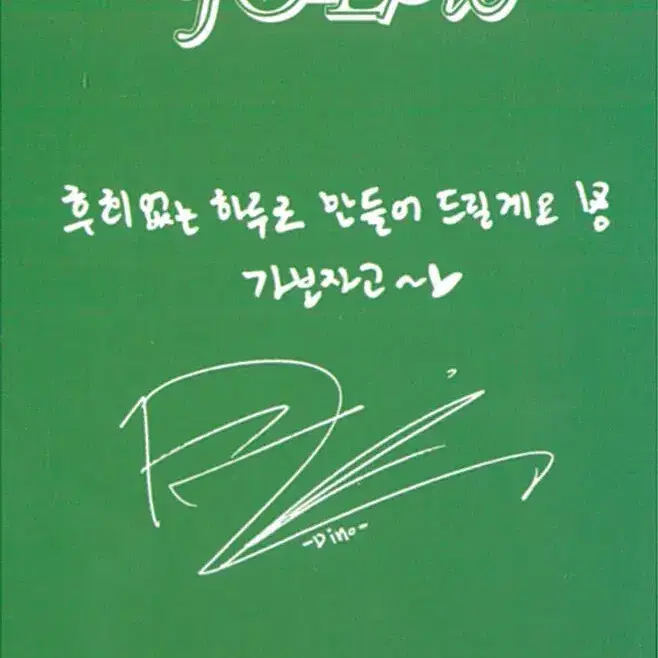 후회없는 하루로 만들어 드릴게요 봉
가보자고~
-Dino-